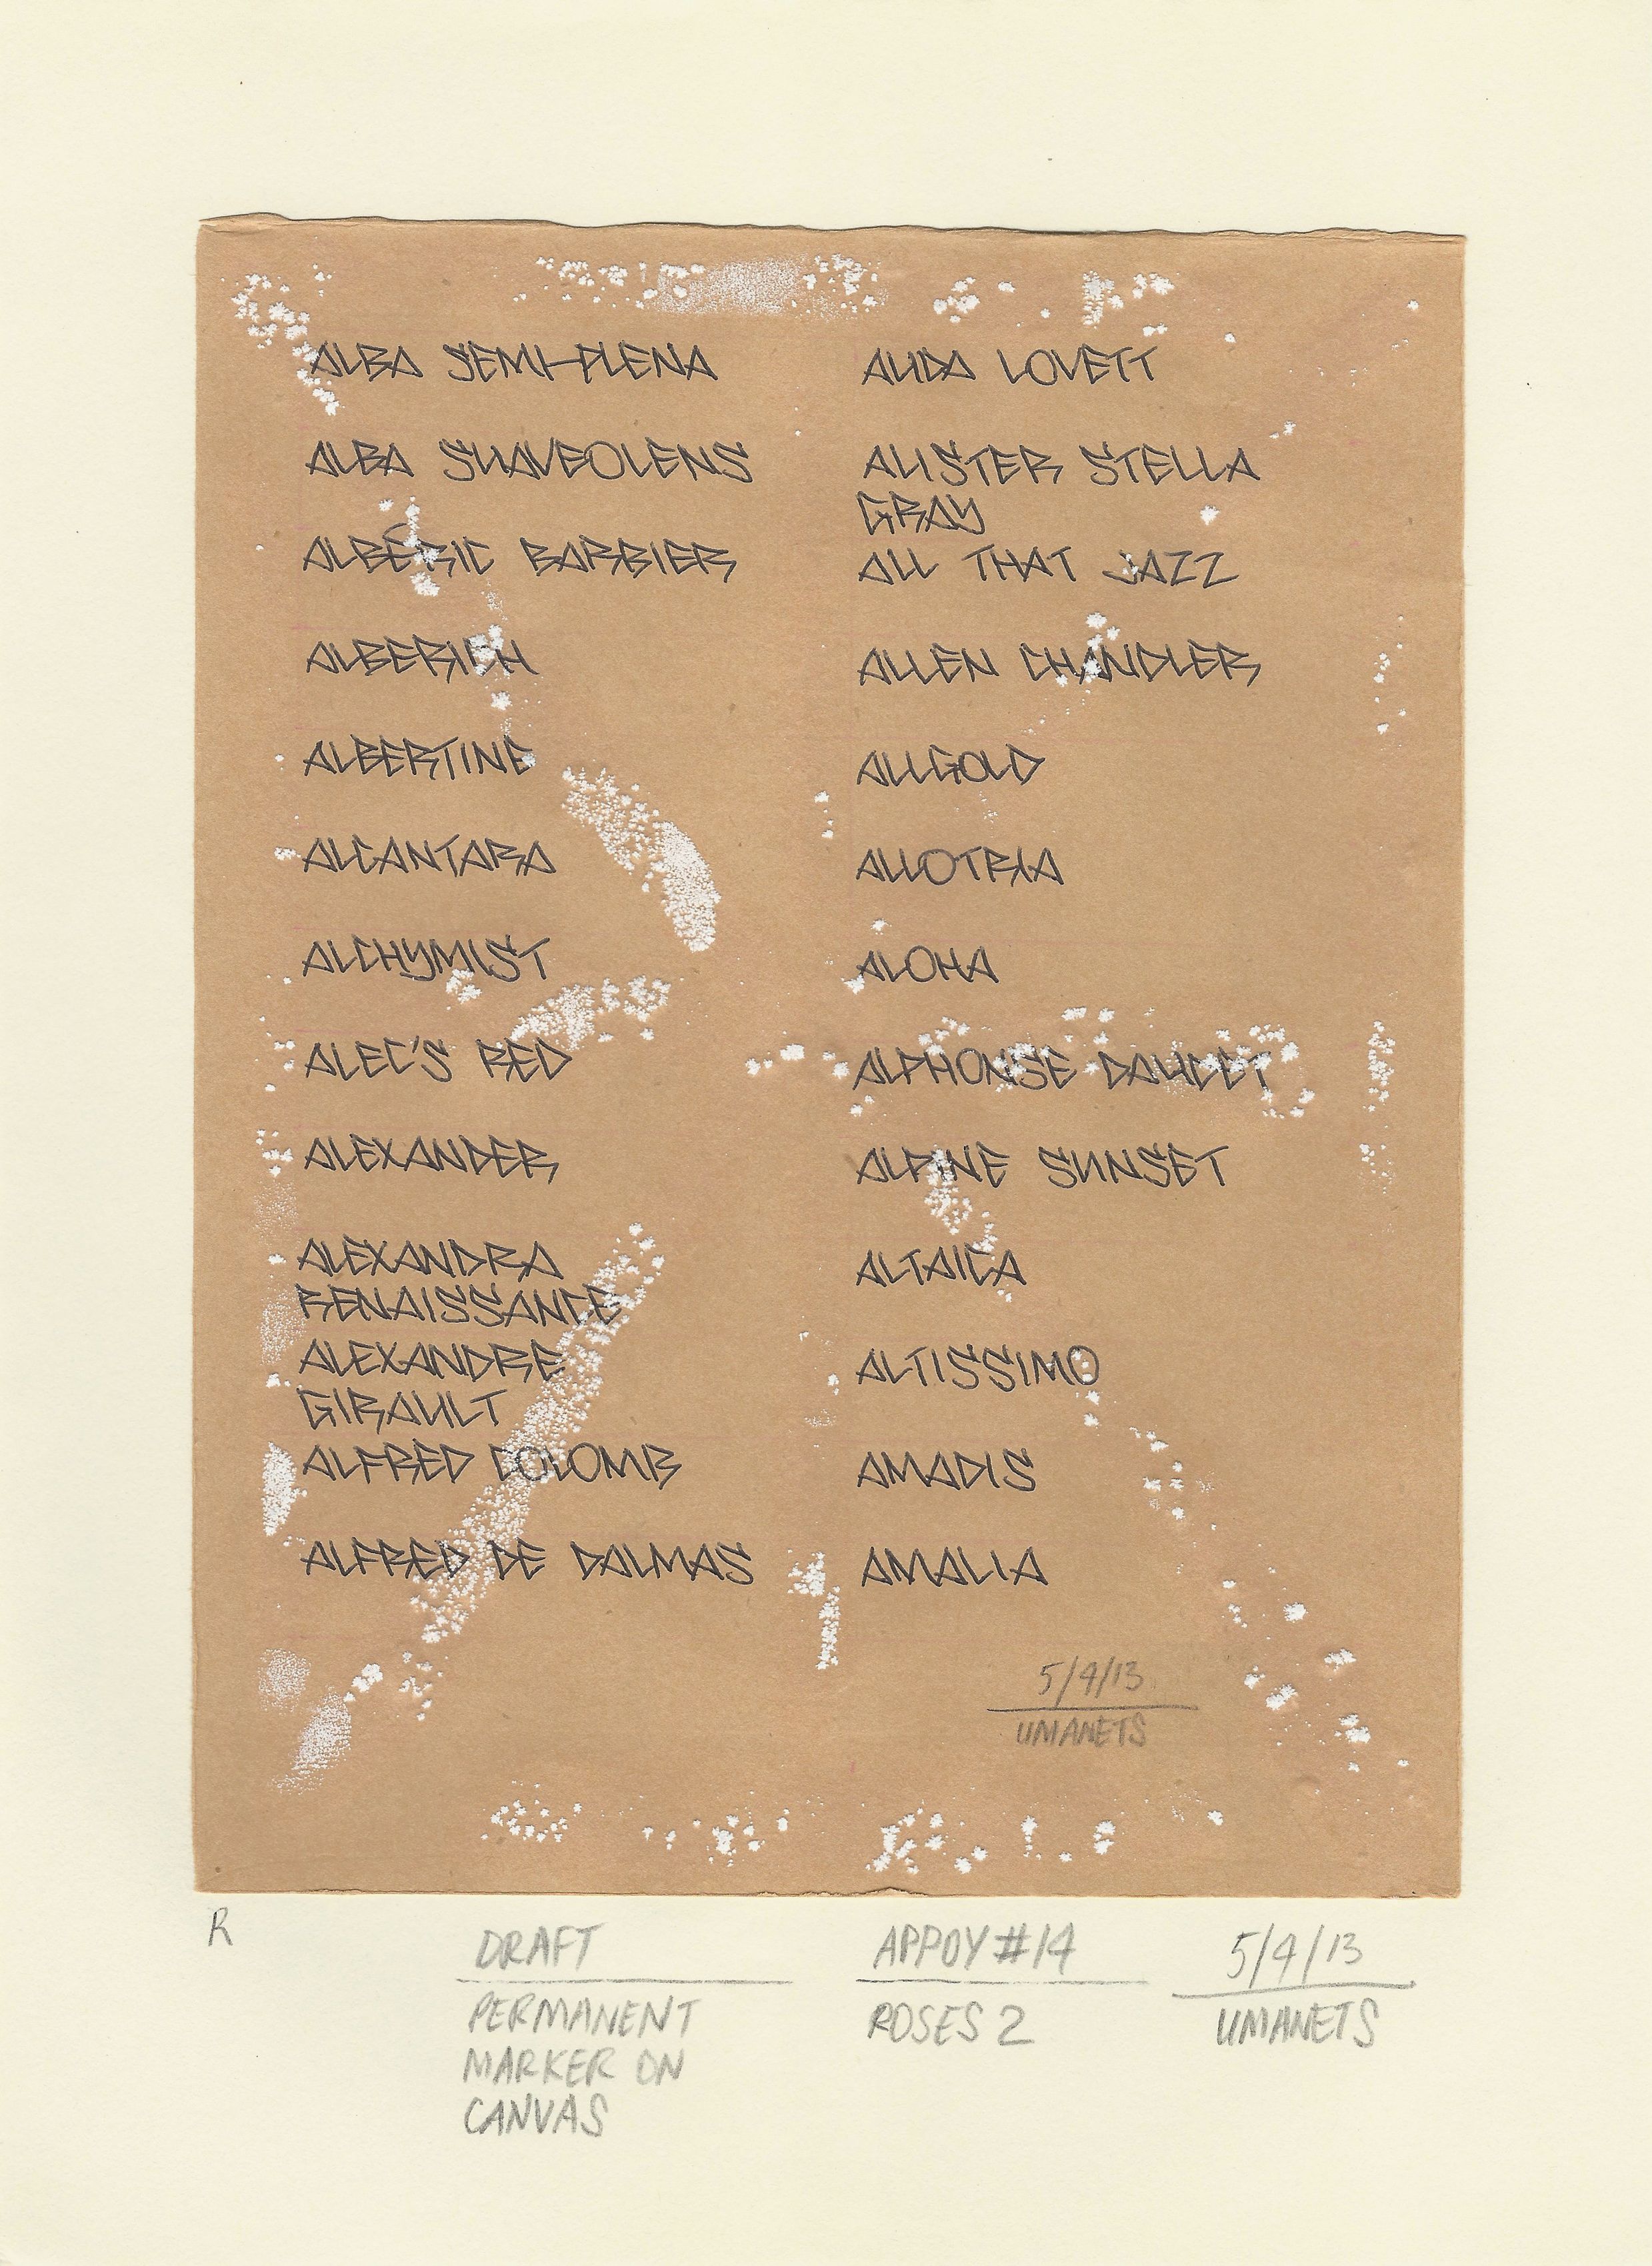 ALBA SEMI-PLENA
ALBA SUAVEOLENS
ALBÉRIC BARBIER
ALBERICH
ALBERTINE
ALCANTARA
ALCHYMIST
ALEC'S RED
ALEXANDER
ALEXANDRA
RENAISSANCE
ALEXANDRE
GIRAULT
ALFRED COLOMB
ALFRED DE DALMAS
ALIDA LOVETT
ALISTER STELLA
GRAY
ALL THAT JAZZ
ALLEN CHANDLER
ALLGOLD
ALLOTRIA
ALOHA
ALPHONSE DAUDET
ALPINE SUNSET
ALTAICA
ALTISSIMO
AMADIS
AMALIA
5/4/13
UMANETS
R
DRAFT
PERMANENT
MARKER ON
CANVAS
APPOY #14
ROSES 2
5/4/13
UMANETS